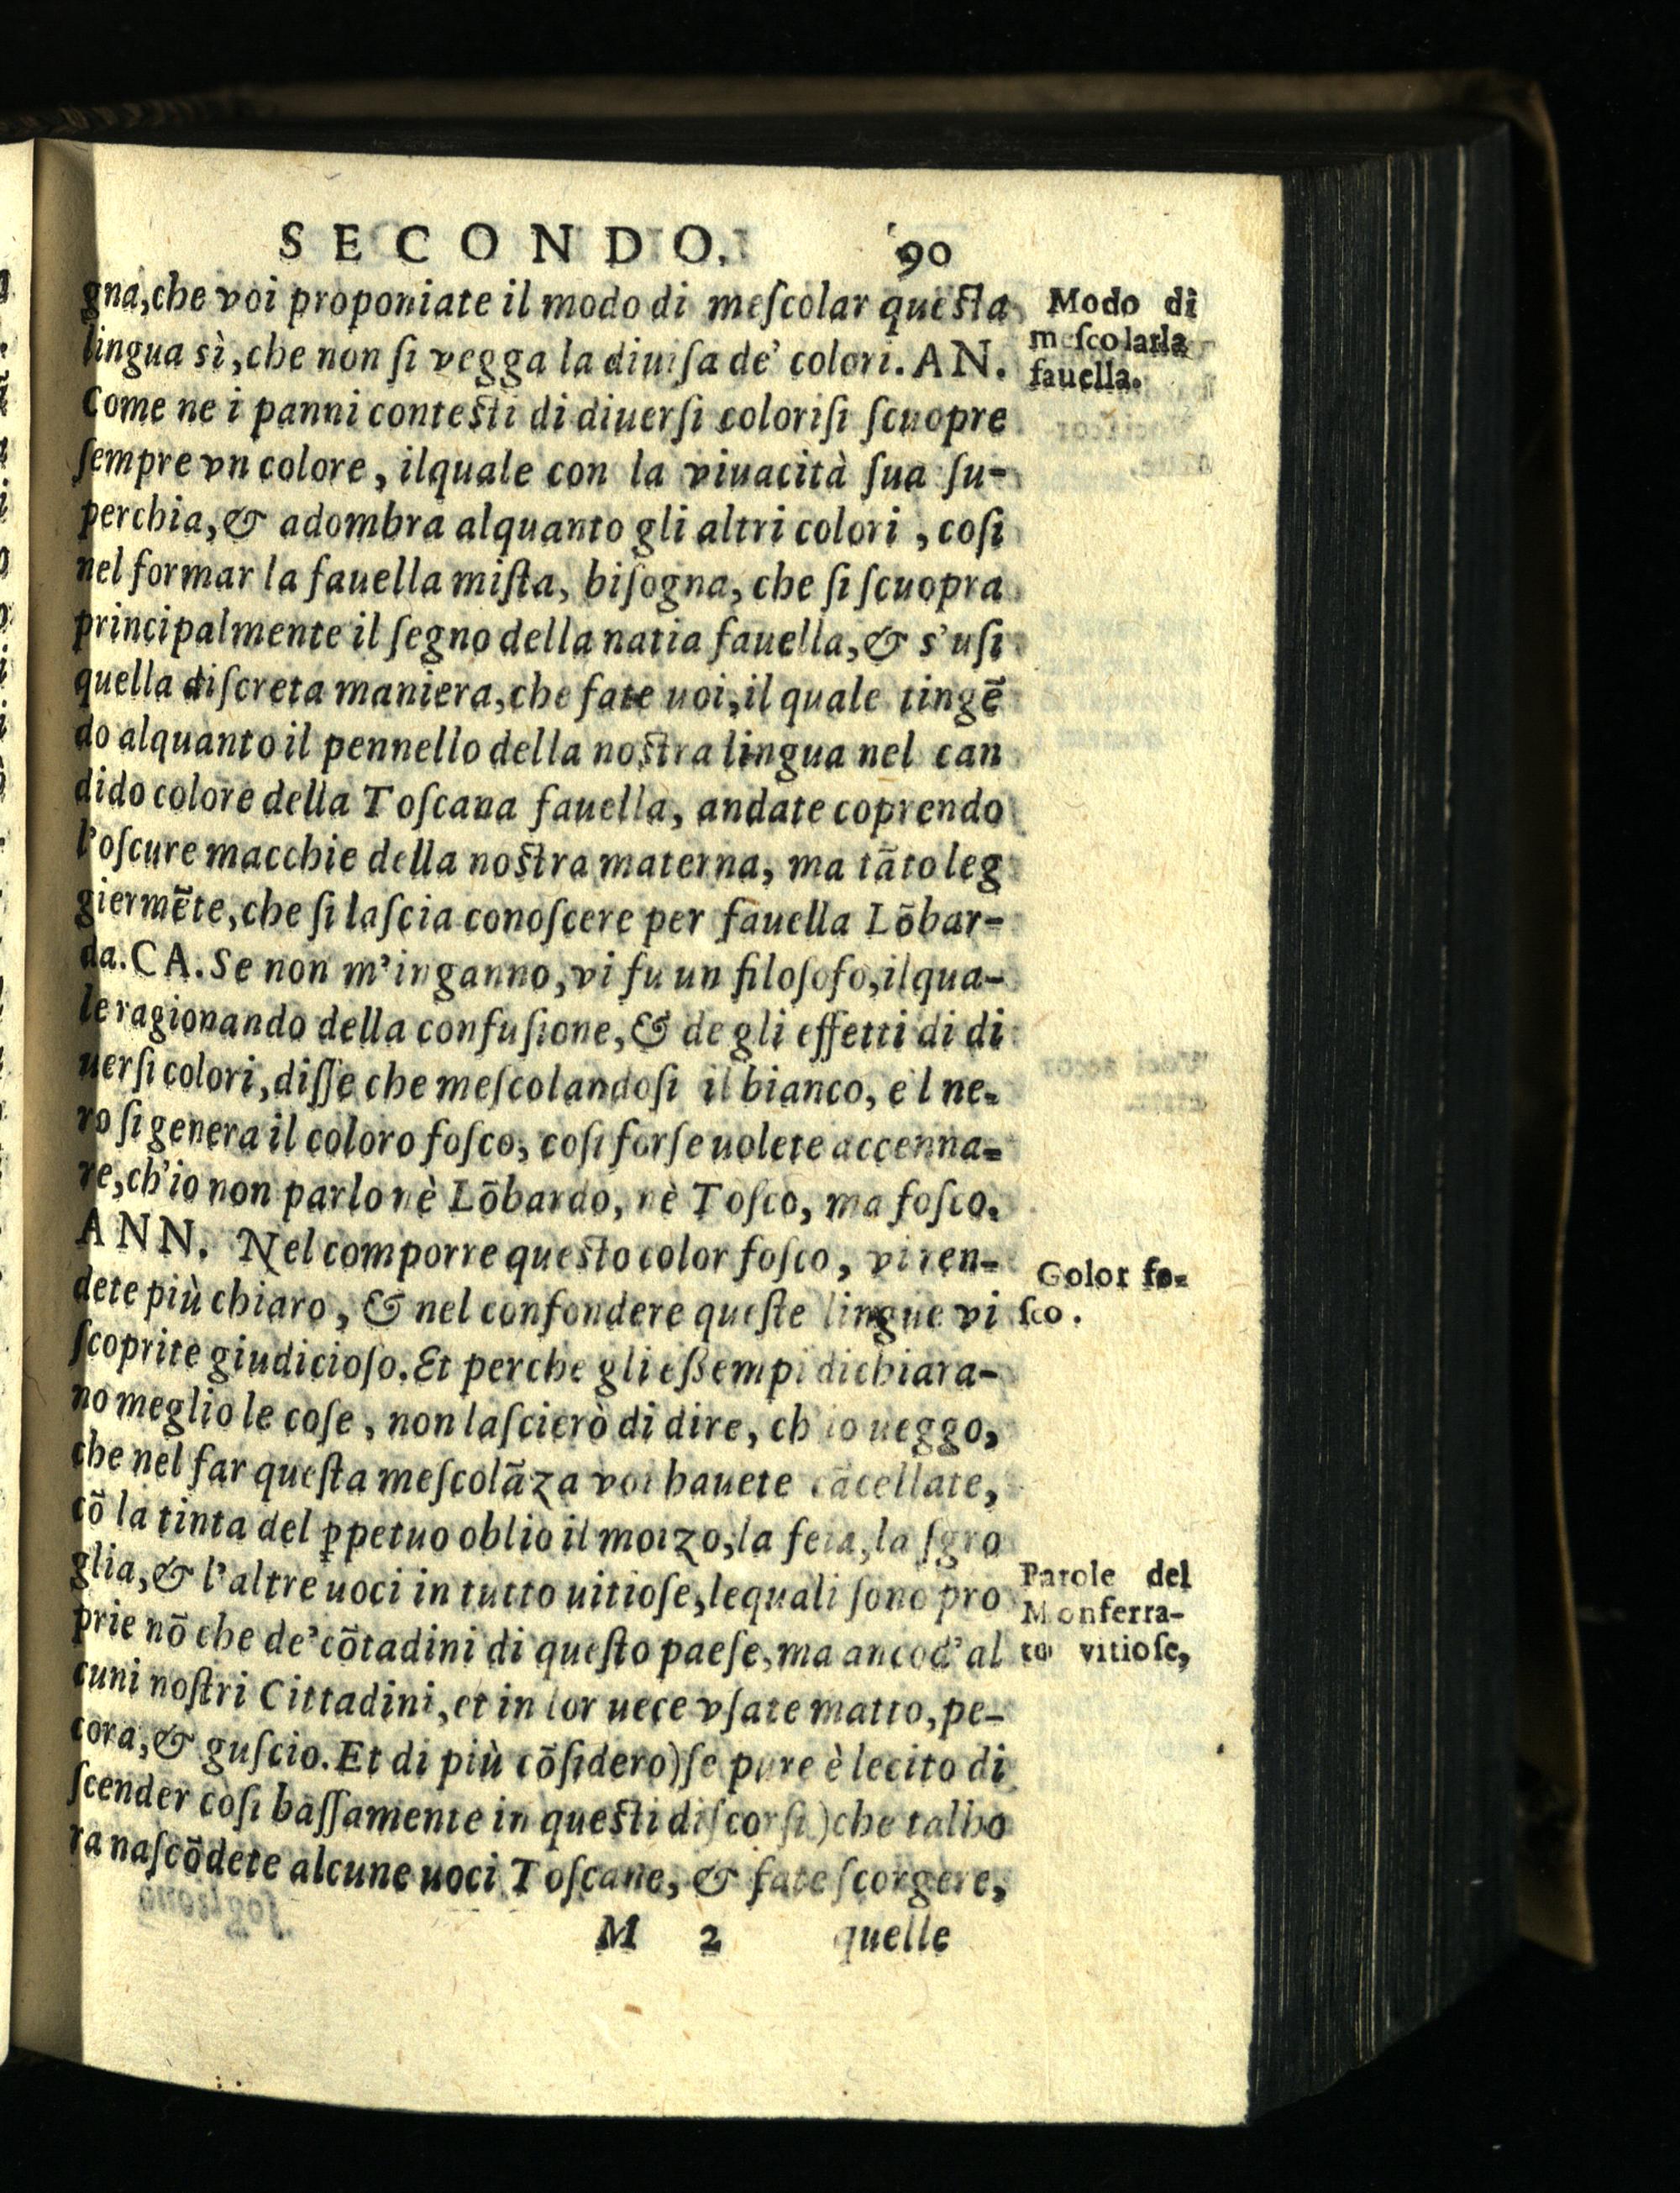 SECONDO. 90
gna, che voi proponiate il modo di meſcolar queſta
lingua sì, che non ſi vegga la diuiſa de' colori. AN.
Come ne i panni conteſti di diuerſi coloriſi ſcuopre
ſempre vn colore, ilquale con la viuacità ſua ſu-
perchia, & adombra alquanto gli altri colori, coſi
nel formar la fauella miſta, biſogna, che ſi ſcuopra
principalmente il ſegno della natia fauella, & s'uſi
quella diſcreta maniera, che fate uoi, il quale tingē
do alquanto il pennello della noſtra lingua nel can
dido colore della Toſcana fauella, andate coprendo
l'oſcure macchie della noſtra materna, ma tāto leg
giermēte, che ſi laſcia conoſcere per fauella Lōbar-
da. CA. Se non m'inganno, vi fu un filoſofo, ilqua-
le ragionando della confuſione, & de gli effetti di di
uerſi colori, diſſe che meſcolandoſi il bianco, e'l ne-
ro ſi genera il coloro foſco, coſi forſe uolete accenna-
re, ch'io non parlo nè Lōbardo, nè Toſco, ma foſco.
ANN. Nel comporre queſto color foſco, vi ren-
dete più chiaro, & nel confondere queſte lingue vi
ſcoprite giudicioſo. Et perche gli eßempi dichiara-
no meglio le coſe, non laſcierò di dire, ch'io ueggo,
che nel far queſta meſcolāza voi hauete cācellate,
cō la tinta del ꝑpetuo oblio il morzo, la feia, la ſgro
glia, & l'altre uoci in tutto uitioſe, lequali ſono pro
prie nō che de' cōtadini di queſto paeſe, ma anco d'al
cuni noſtri Cittadini, et in lor uece vſate matto, pe-
cora, & guſcio. Et di più cōſidero) ſe pure è lecito di
ſcender coſi baſſamente in queſti diſcorſi) che talho
ra naſcōdete alcune uoci Toſcane, & fate ſcorgere,
M 2 quelle
Modo di
meſcolarla
fauella.
Golor fo-
ſco.
Parole del
Monferra-
to vitioſe,